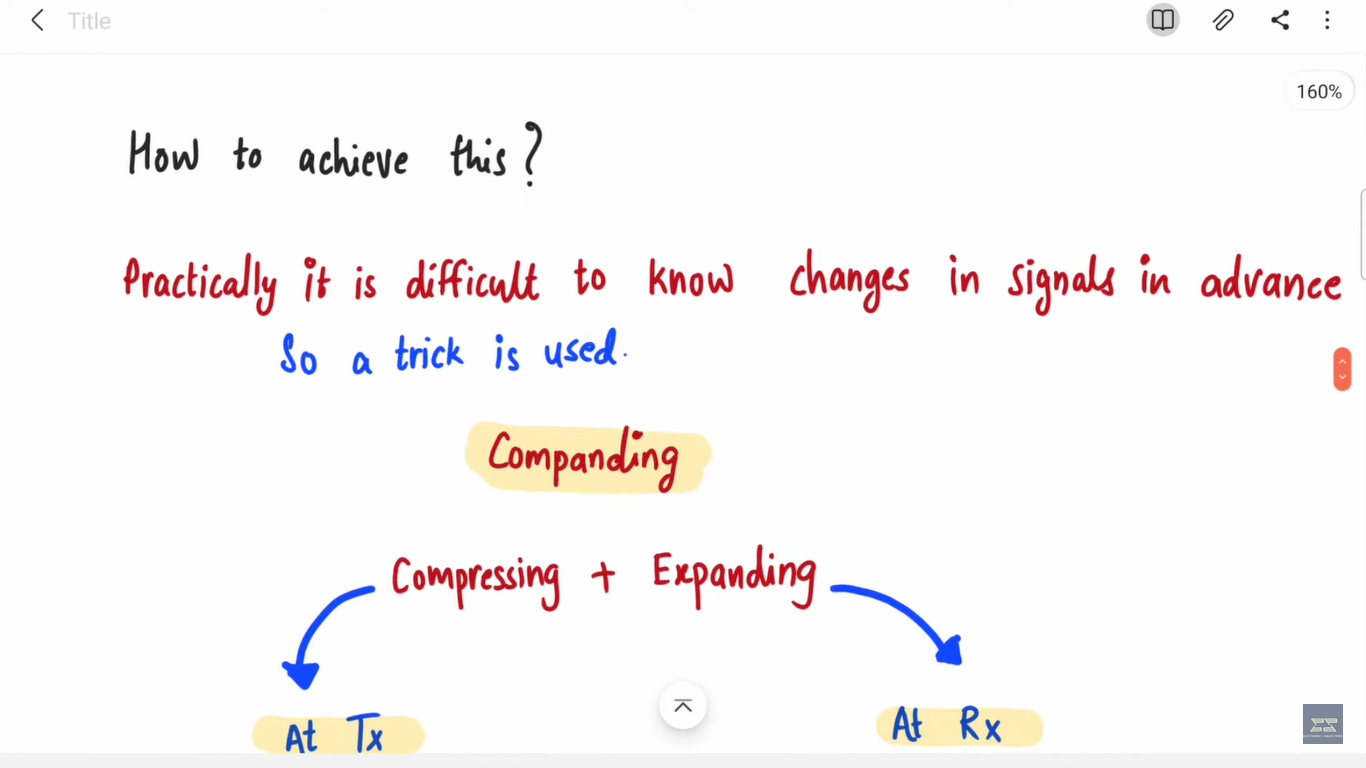 Title
160%
How to achieve this?
Practically it is difficult to know changes in signals in advance
So a trick is used.
Companding
Compressing + Expanding
At Tx
At Rx